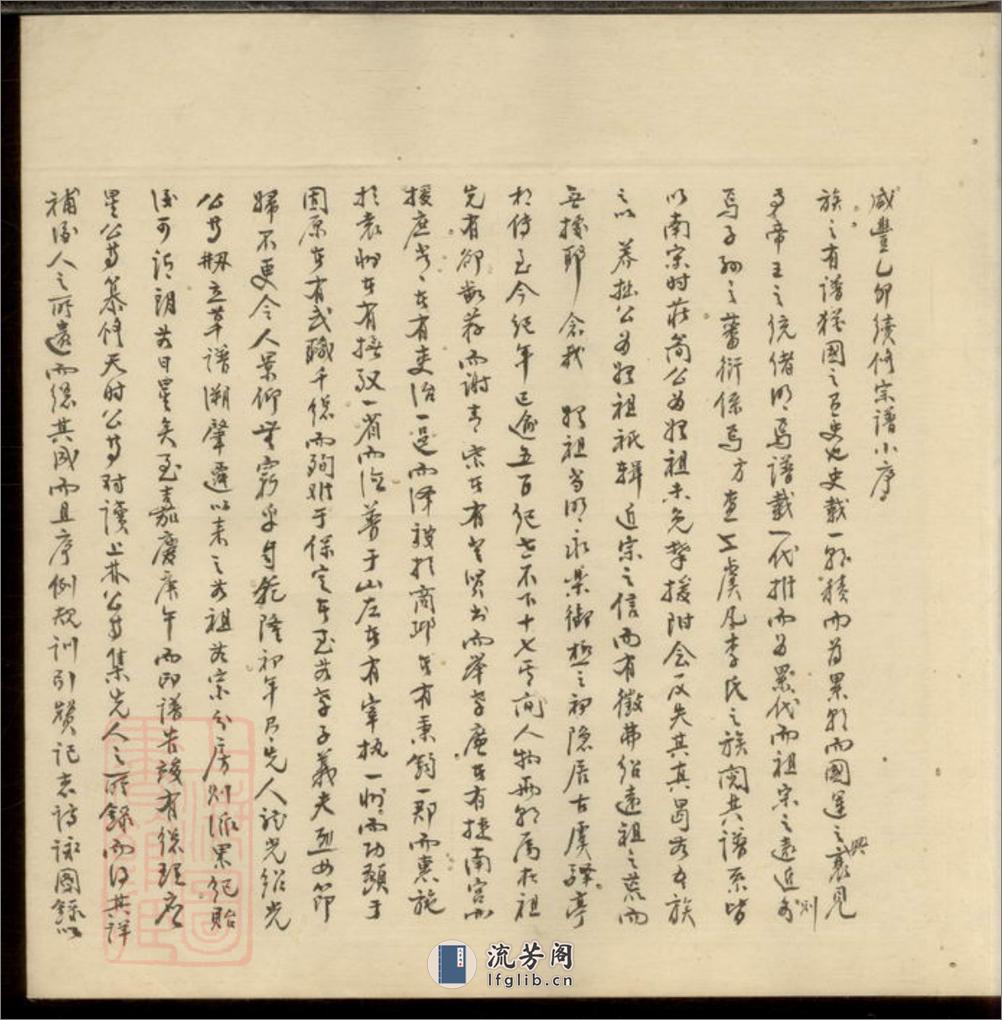 咸豐乙卯續修宗譜小序
族之有譜猶國之有史也史載一縣積而為累縣而國運之興衰見
焉帝王之統緒明焉譜載一代推而為累代而祖宗之遠近別
焉子孫之蕃衍係焉方查上虞凡李氏之族閱其譜系皆
以南宋時莊簡公為始祖未免攀援附會反失其真曷若本族
之以 養拙公為始祖祇輯近宗之信而有徵弗紹遠祖之荒而
無據耶 念我 始祖當明永樂御極之初隱居古虞驛亭
於傳至今紀年已逾五百紀世不下十七其間人物
先有卻 荐而謝青紫者有 聖賢書而舉孝廉者有捷南宮而
援庶常者有吏治一邑而澤被於商邱者有秉鈞一郡而惠施
於袁州者有撫馭一省而德普于山左者有宰執一州而功顯于
固原者有武職千總而殉難于保定者至若孝子義夫烈女節
婦不更令人景仰無窮乎自乾隆初年有先人 光紹光
公等剏立草譜溯肇遷以來之各祖各宗分房別派累紀貽
後可謂朗若日星矣至嘉慶庚午而即譜告竣有總理
星公等纂修天時公等對讀上林公等集先人之所錄而得其詳
補後人之所遺而總其成而且序例規訓引贊記志詩詠圖錄以
流芳阁
lfglib.cn